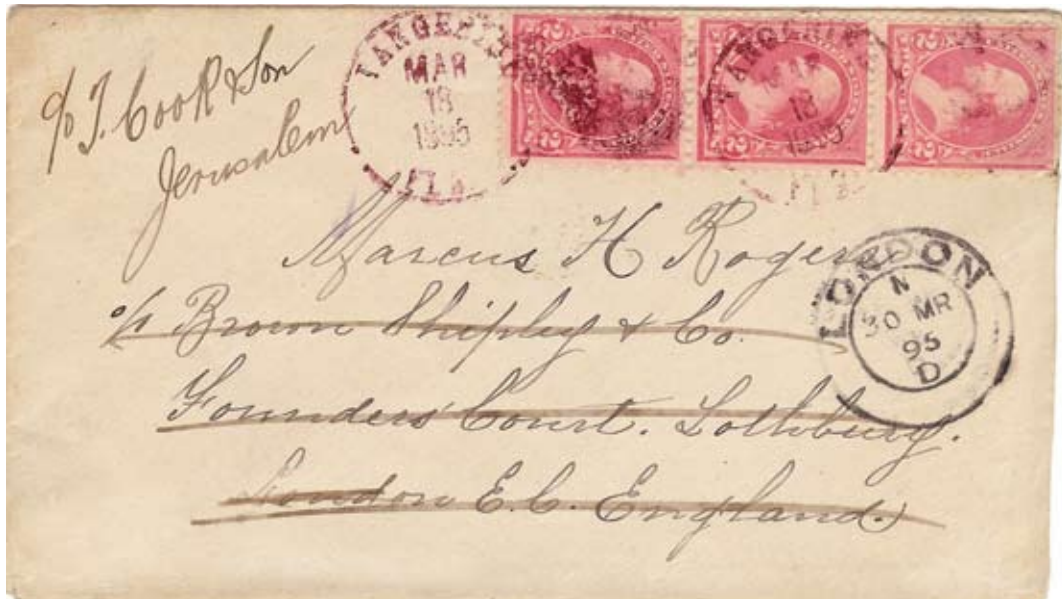 c/o T. Cook & Son
Jerusalem
MAR
18
1895
FLA
MAR
18
Marcus H Rogers
c/o Brown Shipley & Co.
Founders' Court. Lothbury.
London E.C. England.
LONDON
N
30 MR
95
D